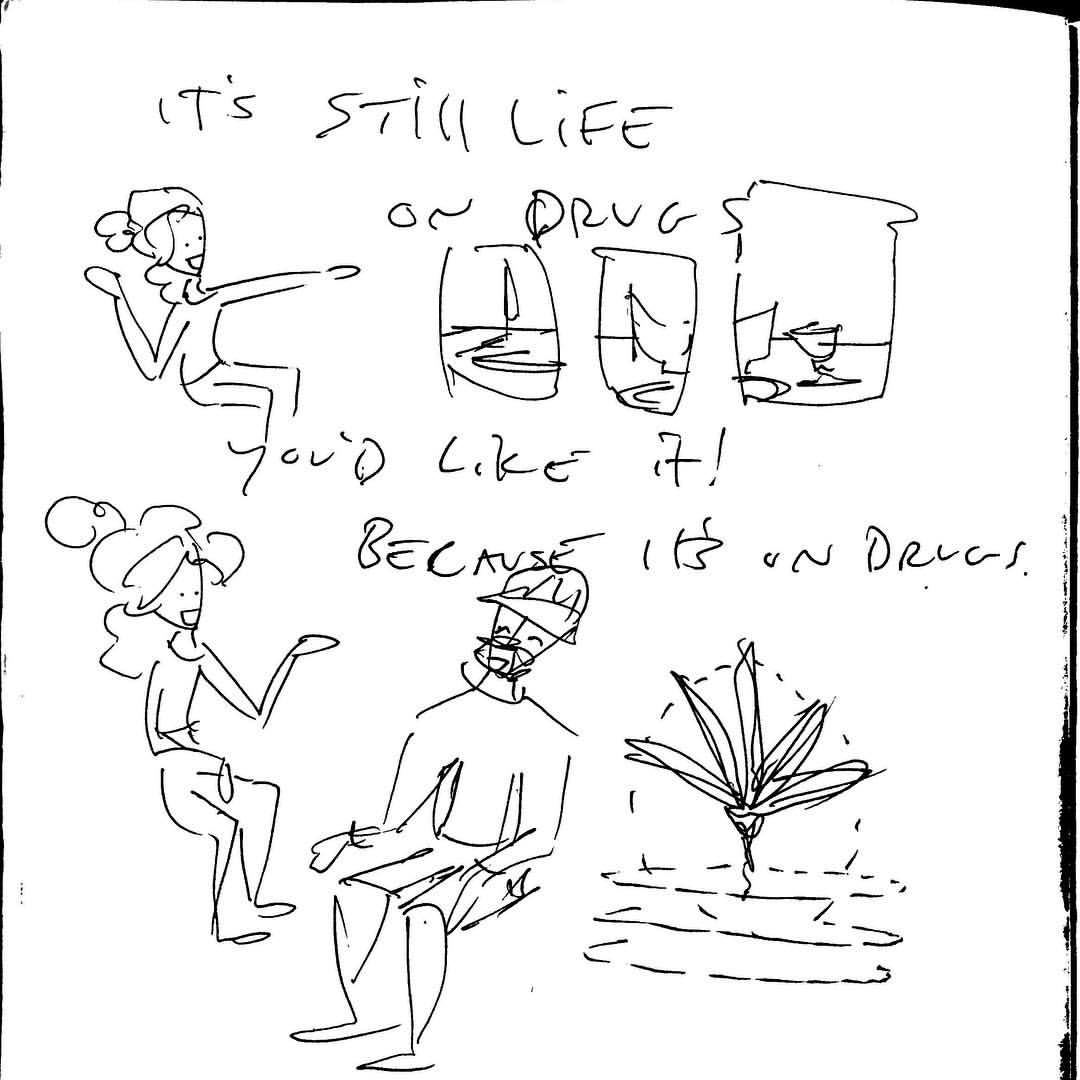 IT'S STILL LIFE
ON DRUGS
YOU'D LIKE IT!
BECAUSE IT'S ON DRUGS.